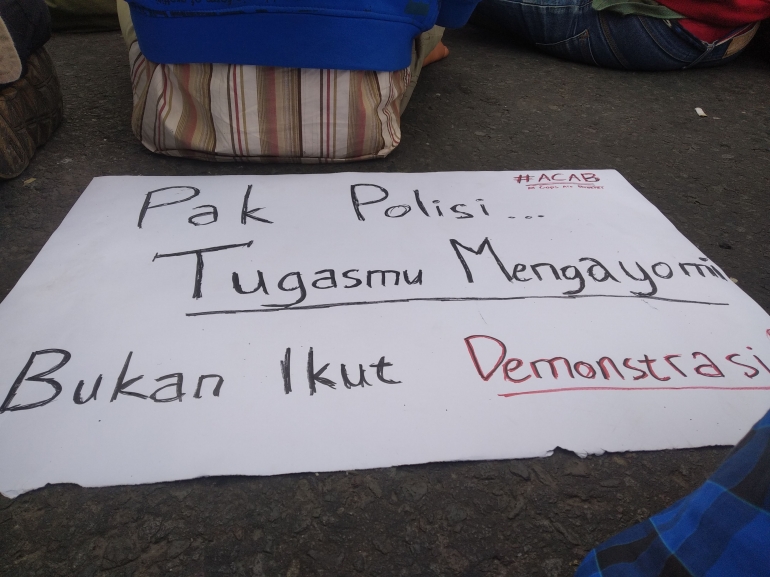 #ACAB
Pak Polisi...
Tugasmu Mengayomi
Bukan Ikut Demonstrasi